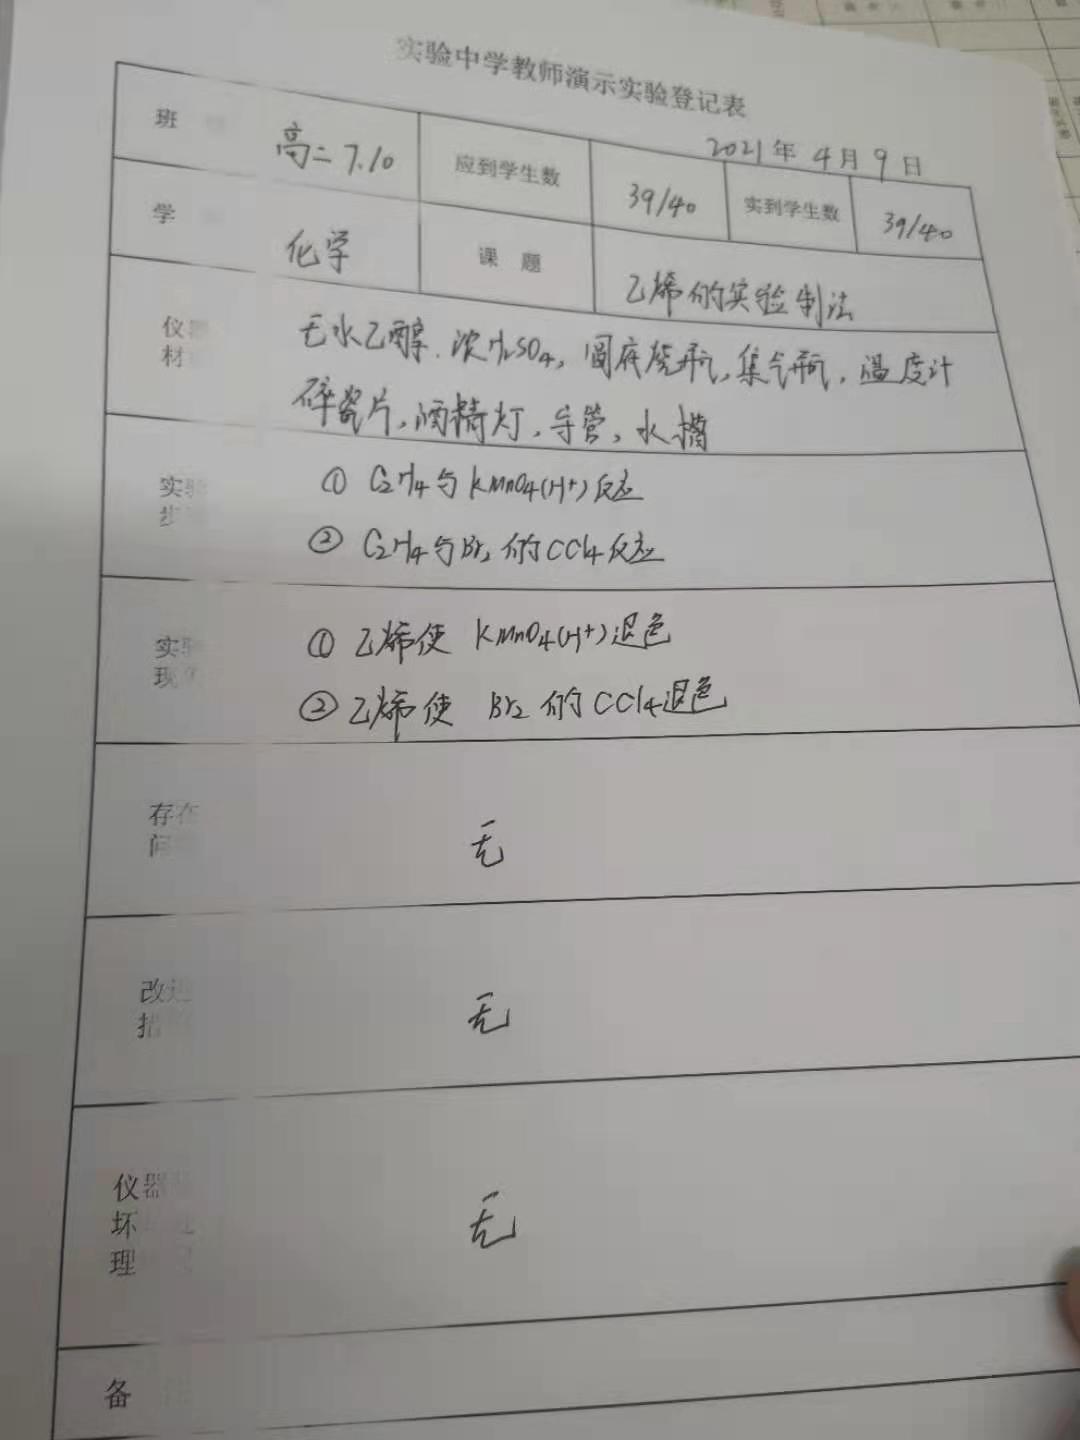 实验中学教师演示实验登记表
2021年4月9日
班 高二7.10 应到学生数 39/40 实到学生数 39/40
学 化学 课题 乙烯的实验制法
仪器 无水乙醇.浓H2SO4,圆底烧瓶,集气瓶,温度计
材 碎瓷片,酒精灯,导管,水槽
实验 ① C2H4与KMnO4(H+)反应
步 ② C2H4与Br2的CCl4反应
实验 ① 乙烯使 KMnO4(H+)退色
现 ② 乙烯使 Br2的CCl4退色
存在
问 无
改进
措 无
仪器
坏 无
理
备